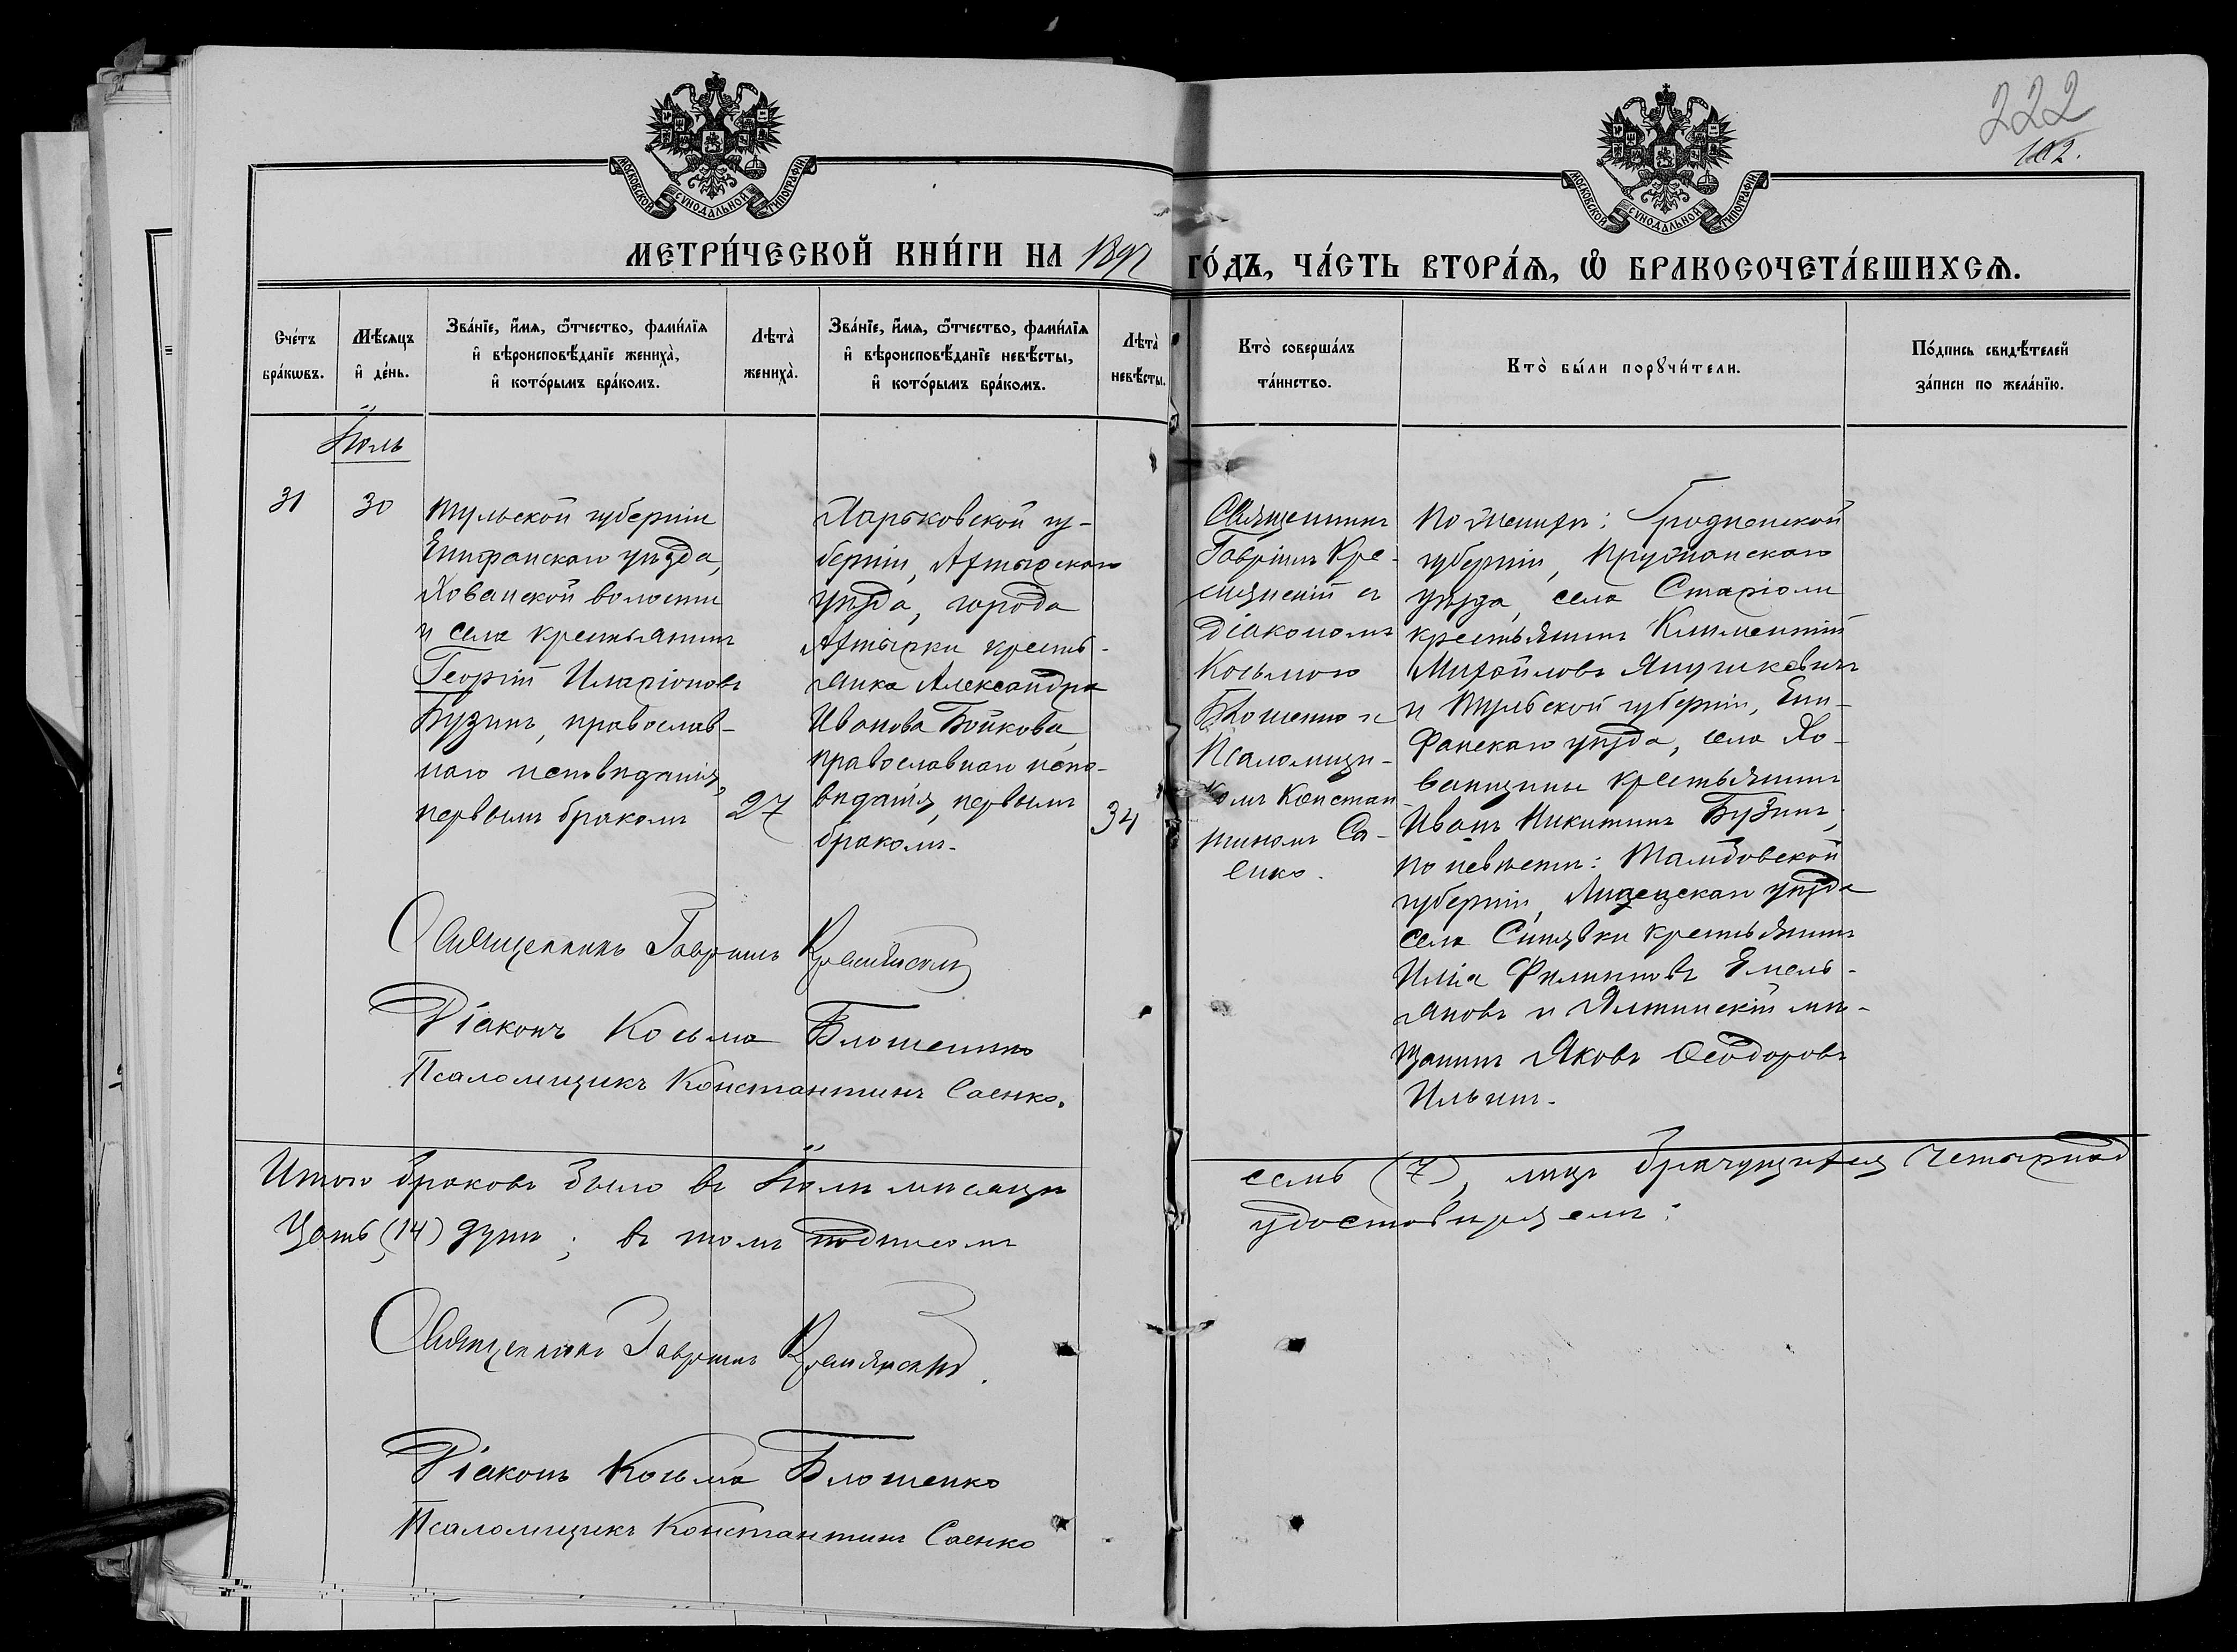 222
102.
МОСКОВСКОЙ СѴНОДАЛЬНОЙ ТИПОГРАФІИ
МОСКОВСКОЙ СѴНОДАЛЬНОЙ ТИПОГРАФІИ
МЕТРИ́ЧЕСКОЙ КНИ́ГИ НА 1892 ГО́ДЪ, ЧА́СТЬ ВТОРА́Ѧ, Ѡ҆ БРАКОСОЧЕТА́ВШИХСѦ.
Сче́тъ
бра́кѡвъ.
Мѣ́сѧцъ
и҆ де́нь.
Зва́нїе, и҆́мѧ, ѻ҆́тчество, фами́лїѧ
и҆ вѣроисповѣ́данїе жениха̀,
и҆ кото́рымъ бра́комъ.
Лѣта̀
жениха̀.
Зва́нїе, и҆́мѧ, ѻ҆́тчество, фами́лїѧ
и҆ вѣроисповѣ́данїе невѣ́сты,
и҆ кото́рымъ бра́комъ.
Лѣта̀
невѣ́сты.
Кто̀ соверша́лъ
та́инство.
Кто̀ бы́ли порꙋчи́тели.
По́дпись свидѣ́телей
за́писи по жела́нїю.
Іюль
31
30
Тульской губерніи
Епифанскаго уѣзда,
Хованской волости
и села крестьянинъ
Георгій Иларіоновъ
Бузинъ, православ-
наго исповѣданія,
первымъ бракомъ
27
Харьковской гу-
берніи, Ахтырскаго
уѣзда, города
Ахтырки кресть-
янка Александра
Иванова Бойкова,
православнаго испо-
вѣданія, первымъ
бракомъ.
34
Священникъ
Гавріилъ Кре-
мянскій съ
Діакономъ
Косьмою
Блошенко и
Псаломщи-
комъ Констан-
тиномъ Са-
енко.
По женихѣ: Гродненской
губерніи, Пружанскаго
уѣзда, села
крестьянинъ Климентій
Михайловъ Янушкевичъ
и Тульской губерніи, Епи-
фанскаго уѣзда, села Хо-
ванщины крестьянинъ
Иванъ Никитинъ Бузинъ;
по невѣстѣ: Тамбовской
губерніи, Липецкаго уѣзда
села Синявки крестьянинъ
Илія Филипповъ Емель-
яновъ и Ялтинскій мѣ-
щанинъ Яковъ Ѳеодоровъ
Ильинъ.
Священникъ Гавріилъ Кремянскій
Діаконъ Косьма Блошенко
Псаломщикъ Константинъ Саенко.
Итого браковъ было въ Іюлѣ мѣсяцѣ семь (7), лицъ брачущихся четырнад
цать (14) душъ; въ томъ подписомъ удостовѣряемъ:
Священникъ Гавріилъ Кремянскій.
Діаконъ Косьма Блошенко
Псаломщикъ Константинъ Саенко